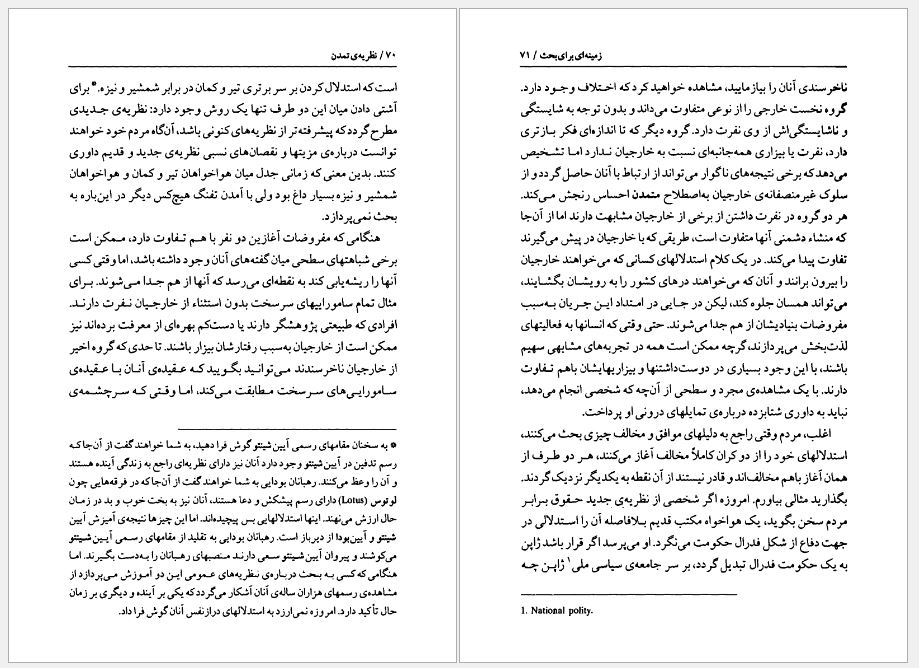 ۷۰ / نظریه‌ی تمدن
است که استدلال کردن بر سر برتری تیر و کمان در برابر شمشیر و نیزه.* برای
آشتی دادن میان این دو طرف تنها یک روش وجود دارد: نظریه‌ی جدیدی
مطرح گردد که پیشرفته‌تر از نظریه‌های کنونی باشد، آن‌گاه مردم خود خواهند
توانست درباره‌ی مزیتها و نقصان‌های نسبی نظریه‌ی جدید و قدیم داوری
کنند. بدین معنی که زمانی جدل میان هواخواهان تیر و کمان و هواخواهان
شمشیر و نیزه بسیار داغ بود ولی با آمدن تفنگ هیچ‌کس دیگر در این‌باره به
بحث نمی‌پردازد.
هنگامی که مفروضات آغازین دو نفر با هم تفاوت دارد، ممکن است
برخی شباهتهای سطحی میان گفته‌های آنان وجود داشته باشد، اما وقتی کسی
آنها را ریشه‌یابی کند به نقطه‌ای می‌رسد که آنها از هم جدا می‌شوند. برای
مثال تمام ساموراییهای سرسخت بدون استثناء از خارجیان نفرت دارند.
افرادی که طبیعتی پژوهشگر دارند یا دست‌کم بهره‌ای از معرفت برده‌اند نیز
ممکن است از خارجیان به‌سبب رفتارشان بیزار باشند. تا حدی که گروه اخیر
از خارجیان ناخرسندند می‌توانید بگویید که عقیده‌ی آنان با عقیده‌ی
سامورایی‌های سرسخت مطابقت می‌کند، اما وقتی که سرچشمه‌ی
* به سخنان مقامهای رسمی آیین شینتو گوش فرا دهید، به شما خواهند گفت از آن‌جا که
رسم تدفین در آیین شینتو وجود دارد آنان نیز دارای نظریه‌ای راجع به زندگی آینده هستند
و آن را وعظ می‌کنند. رهبانان بودایی به شما خواهند گفت از آن‌جا که در فرقه‌هایی چون
لوتوس (Lotus) دارای رسم پیشکش و دعا هستند، آنان نیز به بخت خوب و بد در زمان
حال ارزش می‌نهند. اینها استدلالهایی بس پیچیده‌اند. اما این چیزها نتیجه‌ی آمیزش آیین
شینتو و آیین‌بودا از دیرباز است. رهبانان بودایی به تقلید از مقامهای رسمی آیین شینتو
می‌کوشند و پیروان آیین شینتو سعی دارند منصبهای رهبانان را به‌دست بگیرند. اما
هنگامی که کسی به بحث درباره‌ی نظریه‌های عمومی این دو آموزش می‌پردازد از
مشاهده‌ی رسمهای هزاران ساله‌ی آنان آشکار می‌گردد که یکی بر آینده و دیگری بر زمان
حال تأکید دارد. امروزه نمی‌ارزد به استدلالهای درازنفس آنان گوش فرا داد.
زمینه‌ای برای بحث / ۷۱
ناخرسندی آنان را بیازمایید، مشاهده خواهید کرد که اختلاف وجود دارد.
گروه نخست خارجی را از نوعی متفاوت می‌داند و بدون توجه به شایستگی
و ناشایستگی‌اش از وی نفرت دارد. گروه دیگر که تا اندازه‌ای فکر بازتری
دارد، نفرت یا بیزاری همه‌جانبه‌ای نسبت به خارجیان ندارد اما تشخیص
می‌دهد که برخی نتیجه‌های ناگوار می‌تواند از ارتباط با آنان حاصل گردد و از
سلوک غیرمنصفانه‌ی خارجیان به‌اصطلاح متمدن احساس رنجش می‌کند.
هر دو گروه در نفرت داشتن از برخی از خارجیان مشابهت دارند اما از آن‌جا
که منشاء دشمنی آنها متفاوت است، طریقی که با خارجیان در پیش می‌گیرند
تفاوت پیدا می‌کند. در یک کلام استدلالهای کسانی که می‌خواهند خارجیان
را بیرون برانند و آنان که می‌خواهند درهای کشور را به رویشان بگشایند،
می‌تواند همسان جلوه کند، لیکن در جایی در امتداد این جریان به‌سبب
مفروضات بنیادیشان از هم جدا می‌شوند. حتی وقتی که انسانها به فعالیتهای
لذت‌بخش می‌پردازند، گرچه ممکن است همه در تجربه‌های مشابهی سهیم
باشند، با این وجود بسیاری در دوست‌داشتنها و بیزاریهایشان باهم تفاوت
دارند. با یک مشاهده‌ی مجرد و سطحی از آن‌چه که شخصی انجام می‌دهد،
نباید به داوری شتابزده درباره‌ی تمایلهای درونی او پرداخت.
اغلب، مردم وقتی راجع به دلیلهای موافق و مخالف چیزی بحث می‌کنند،
استدلالهای خود را از دو کران کاملاً مخالف آغاز می‌کنند، هر دو طرف از
همان آغاز باهم مخالف‌اند و قادر نیستند از آن نقطه به یکدیگر نزدیک گردند.
بگذارید مثالی بیاورم. امروزه اگر شخصی از نظریه‌ی جدید حقوق برابر
مردم سخن بگوید، یک هواخواه مکتب قدیم بلافاصله آن را استدلالی در
جهت دفاع از شکل فدرال حکومت می‌نگرد. او می‌پرسد اگر قرار باشد ژاپن
به یک حکومت فدرال تبدیل گردد، بر سر جامعه‌ی سیاسی ملی۱ ژاپن چه
1. National polity.